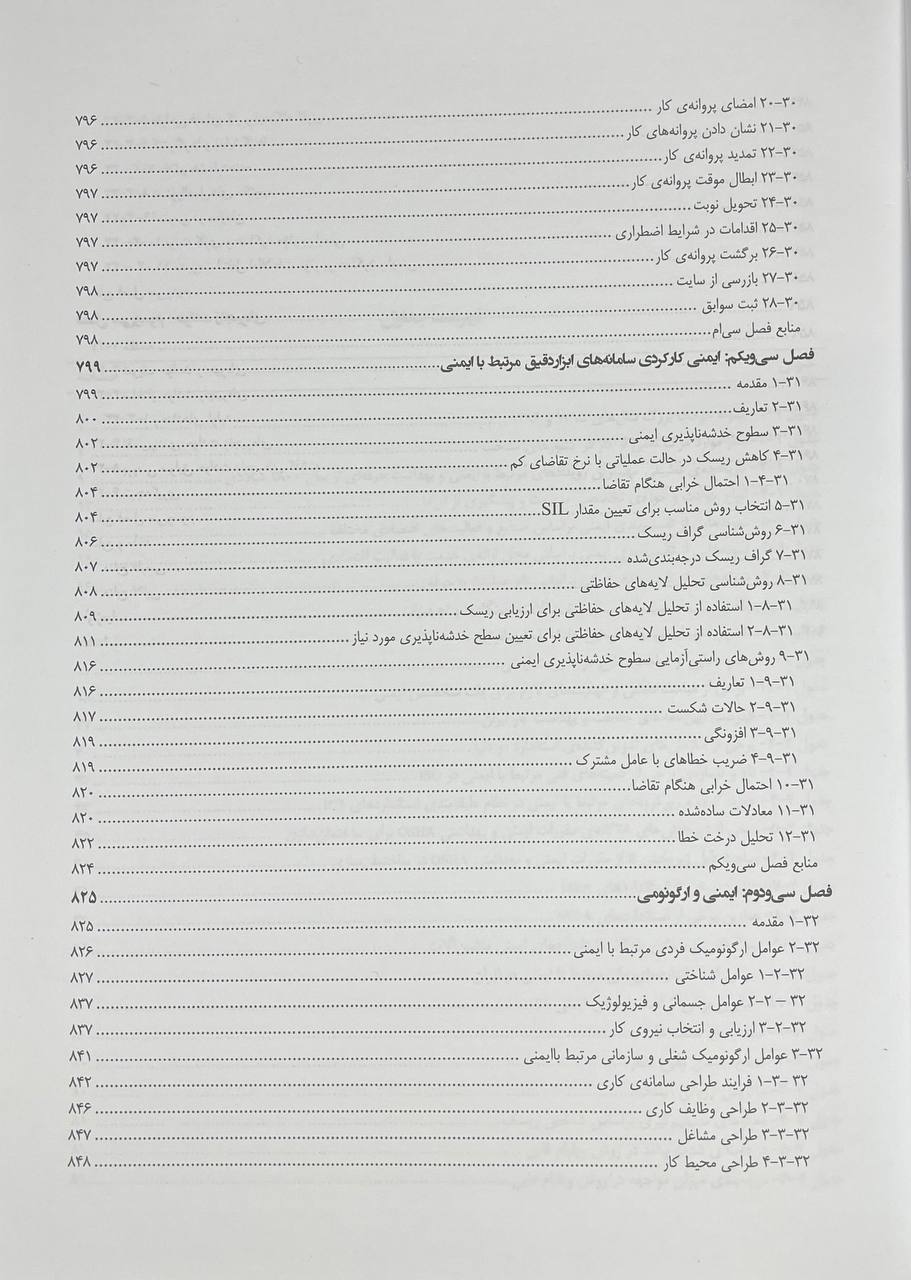 ۲۰-۳۰ امضای پروانه‌ی کار ........ ۷۹۶
۲۱-۳۰ نشان دادن پروانه‌های کار ........ ۷۹۶
۲۲-۳۰ تمدید پروانه‌ی کار ........ ۷۹۶
۲۳-۳۰ ابطال موقت پروانه‌ی کار ........ ۷۹۷
۲۴-۳۰ تحویل نوبت ........ ۷۹۷
۲۵-۳۰ اقدامات در شرایط اضطراری ........ ۷۹۷
۲۶-۳۰ برگشت پروانه‌ی کار ........ ۷۹۷
۲۷-۳۰ بازرسی از سایت ........ ۷۹۸
۲۸-۳۰ ثبت سوابق ........ ۷۹۸
منابع فصل سی‌ام ........ ۷۹۸
فصل سی‌ویکم: ایمنی کارکردی سامانه‌های ابزاردقیق مرتبط با ایمنی ........ ۷۹۹
۱-۳۱ مقدمه ........ ۷۹۹
۲-۳۱ تعاریف ........ ۸۰۰
۳-۳۱ سطوح خدشه‌ناپذیری ایمنی ........ ۸۰۲
۴-۳۱ کاهش ریسک در حالت عملیاتی با نرخ تقاضای کم ........ ۸۰۲
۱-۴-۳۱ احتمال خرابی هنگام تقاضا ........ ۸۰۴
۵-۳۱ انتخاب روش مناسب برای تعیین مقدار SIL ........ ۸۰۴
۶-۳۱ روش‌شناسی گراف ریسک ........ ۸۰۶
۷-۳۱ گراف ریسک درجه‌بندی‌شده ........ ۸۰۷
۸-۳۱ روش‌شناسی تحلیل لایه‌های حفاظتی ........ ۸۰۸
۱-۸-۳۱ استفاده از تحلیل لایه‌های حفاظتی برای ارزیابی ریسک ........ ۸۰۹
۲-۸-۳۱ استفاده از تحلیل لایه‌های حفاظتی برای تعیین سطح خدشه‌ناپذیری مورد نیاز ........ ۸۱۱
۹-۳۱ روش‌های راستی‌آزمایی سطوح خدشه‌ناپذیری ایمنی ........ ۸۱۶
۱-۹-۳۱ تعاریف ........ ۸۱۶
۲-۹-۳۱ حالات شکست ........ ۸۱۷
۳-۹-۳۱ افزونگی ........ ۸۱۹
۴-۹-۳۱ ضریب خطاهای با عامل مشترک ........ ۸۱۹
۱۰-۳۱ احتمال خرابی هنگام تقاضا ........ ۸۲۰
۱۱-۳۱ معادلات ساده‌شده ........ ۸۲۰
۱۲-۳۱ تحلیل درخت خطا ........ ۸۲۲
منابع فصل سی‌ویکم ........ ۸۲۴
فصل سی‌ودوم: ایمنی و ارگونومی ........ ۸۲۵
۱-۳۲ مقدمه ........ ۸۲۵
۲-۳۲ عوامل ارگونومیک فردی مرتبط با ایمنی ........ ۸۲۶
۱-۲-۳۲ عوامل شناختی ........ ۸۲۷
۳۲ – ۲-۲ عوامل جسمانی و فیزیولوژیک ........ ۸۳۷
۳-۲-۳۲ ارزیابی و انتخاب نیروی کار ........ ۸۳۷
۳-۳۲ عوامل ارگونومیک شغلی و سازمانی مرتبط باایمنی ........ ۸۴۱
۳۲ -۳-۱ فرایند طراحی سامانه‌ی کاری ........ ۸۴۲
۲-۳-۳۲ طراحی وظایف کاری ........ ۸۴۶
۳-۳-۳۲ طراحی مشاغل ........ ۸۴۷
۴-۳-۳۲ طراحی محیط کار ........ ۸۴۸